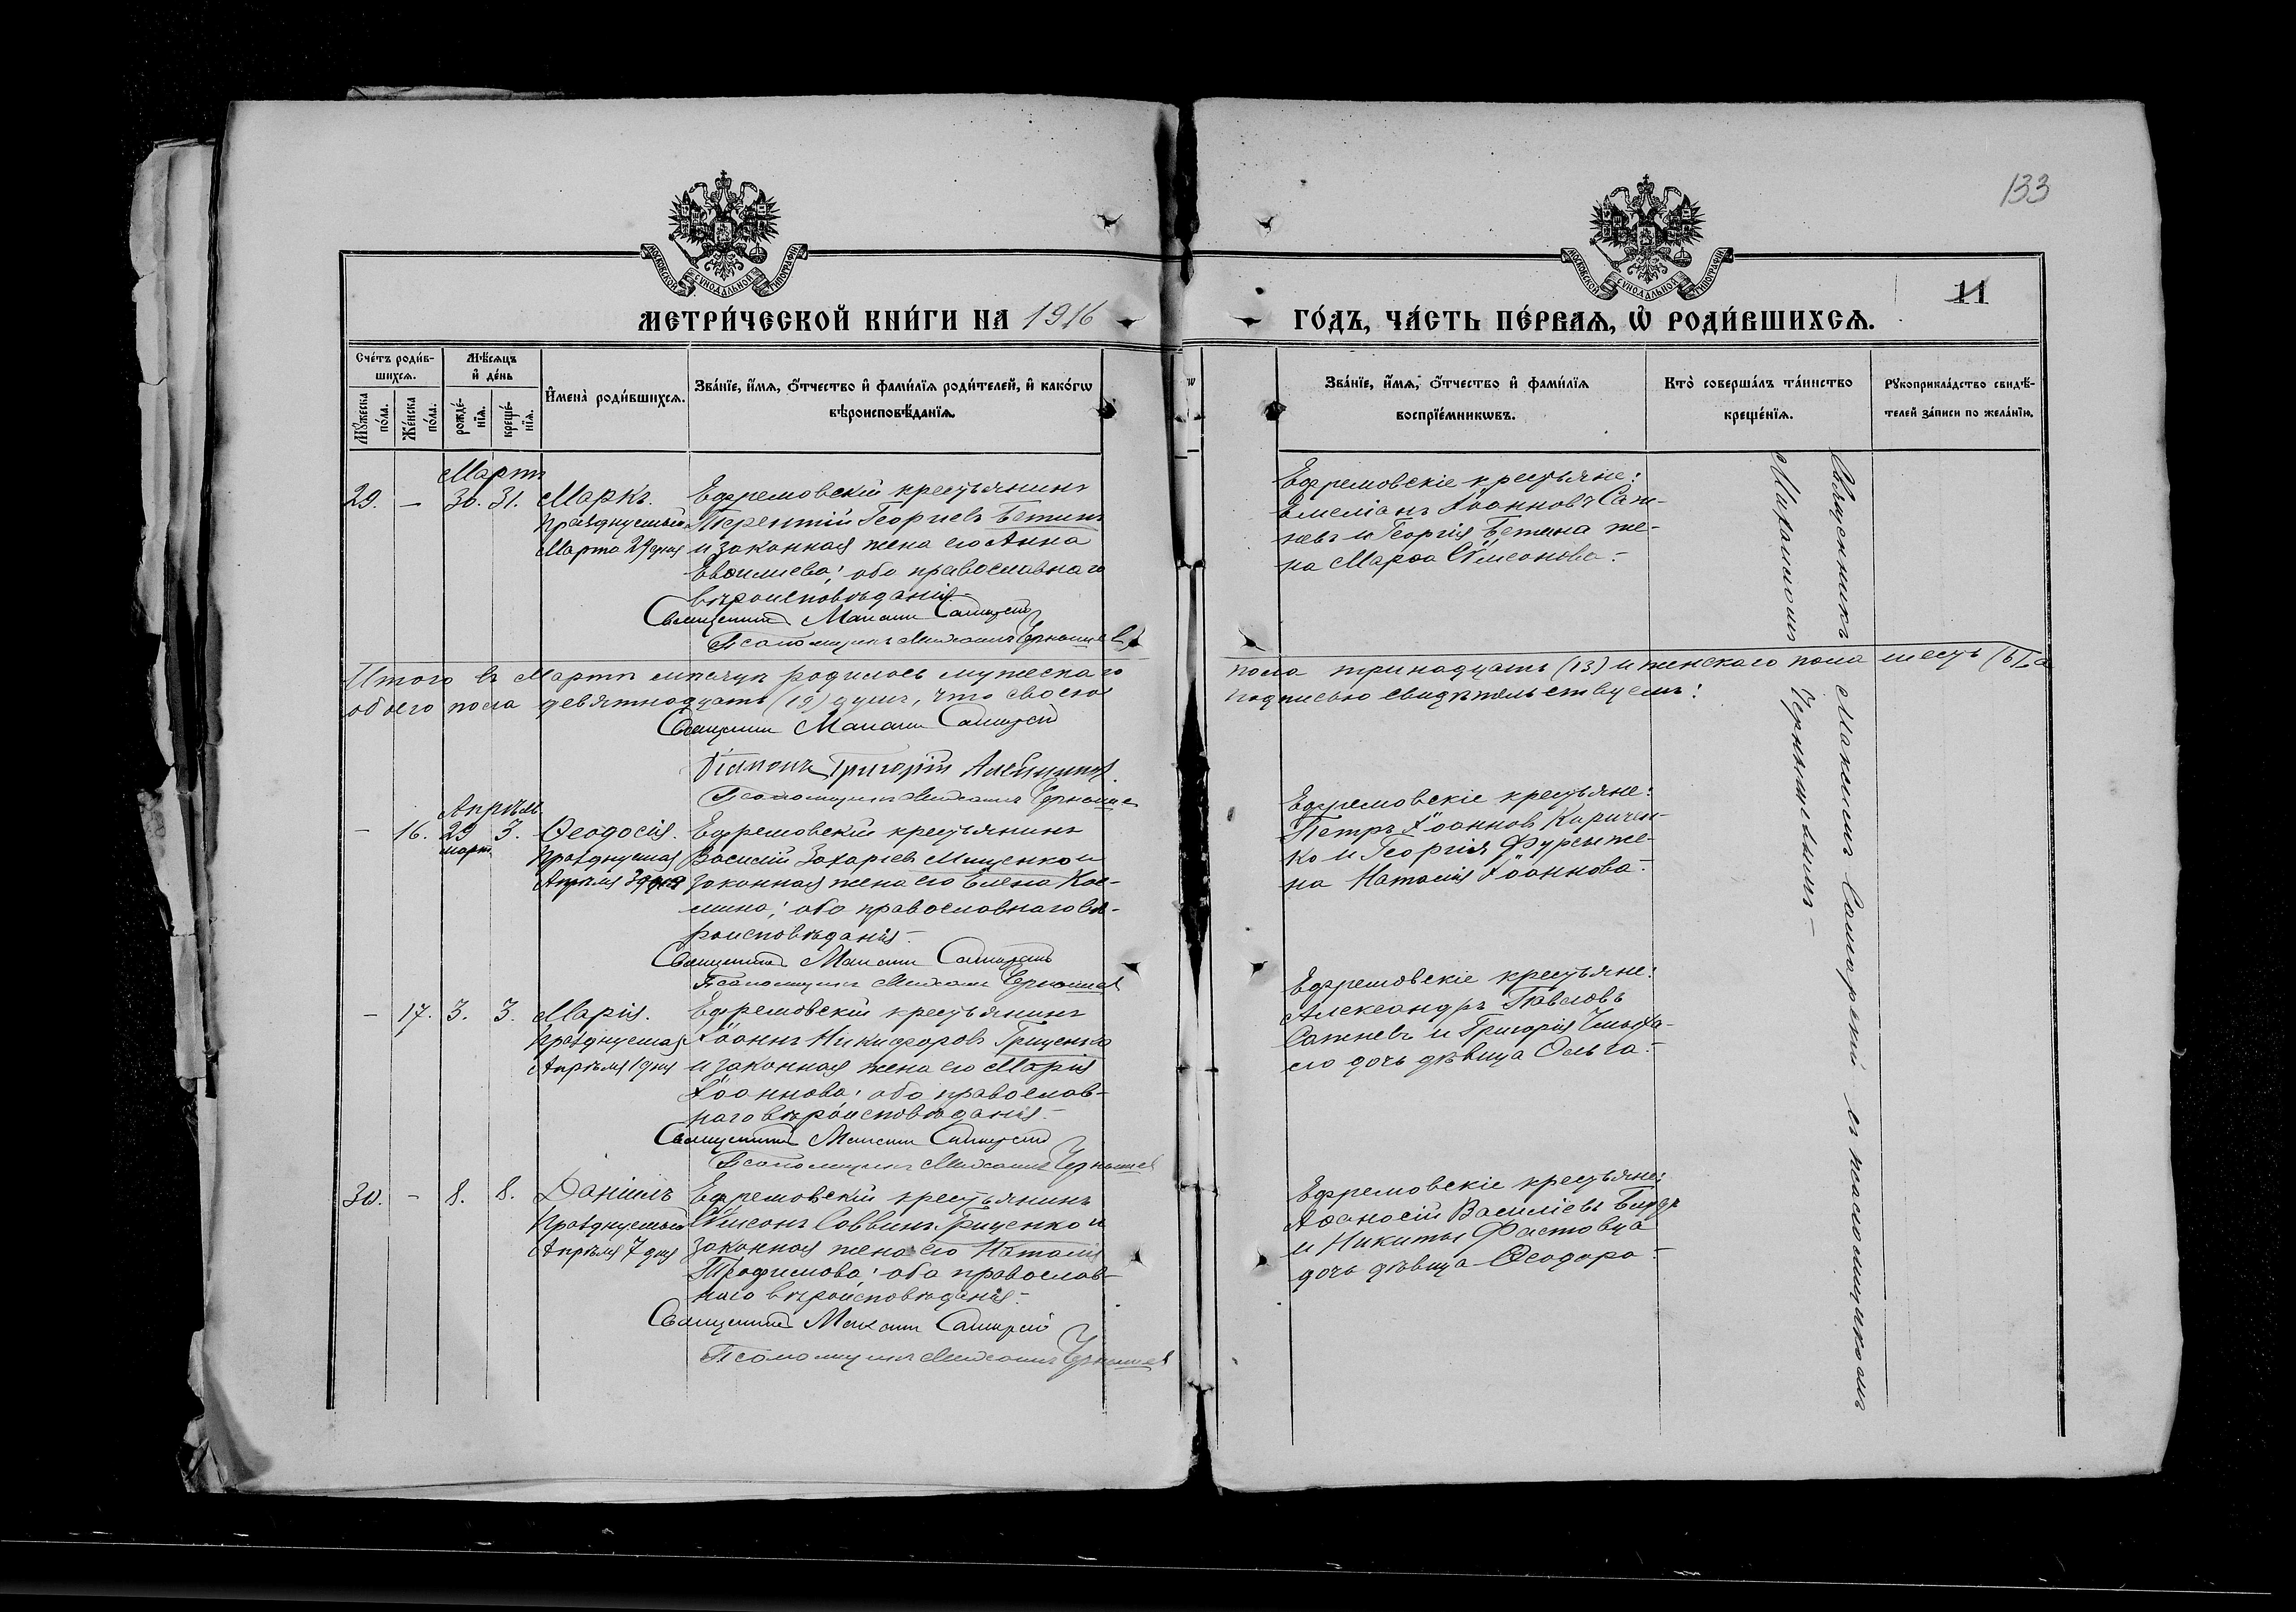 133
МОСКОВСКОЙ СѴНОДАЛЬНОЙ ТИПОГРАФІИ
МОСКОВСКОЙ СѴНОДАЛЬНОЙ ТИПОГРАФІИ
11
МЕТРИ́ЧЕСКОЙ КНИ́ГИ НА 1916
ГО́ДЪ, ЧА́СТЬ ПЕ́РВАѦ, Ѡ РОДИ́ВШИХСѦ.
Сче́тъ роди́в-
шихсѧ.
Мꙋжеска по́ла.
Же́нска по́ла.
Мѣ́сѧцъ и де́нь
рожде́-
нїѧ.
креще́-
нїѧ.
Имена̀ роди́вшихсѧ.
Зва́нїе, и́мѧ, о́тчество и фами́лїѧ роди́телей, и како́гѡ
вѣроисповѣ́данїѧ.
Зва́нїе, и́мѧ, о́тчество и фами́лїѧ
воспрїе́мникѡвъ.
Кто̀ соверша́лъ та́инство
креще́нїѧ.
Рꙋкоприкла́дство свидѣ́-
телей за́писи по жела́нїю.
Мартъ
29. – 30. 31. Маркъ.
Празднуемый
Марта 29 дня
Ефремовскій крестьянинъ
Терентій Георгіевъ Бетинъ
и законная жена его Анна
Евфиміева; оба православнаго
вѣроисповѣданія.
Священникъ Максимъ Самарскій
Псаломщикъ Михаилъ Чернышевъ
Ефремовскіе крестьяне:
Емеліанъ Іоанновъ Саж-
невъ и Георгія Бетина же-
на Марѳа Сѷмеонова.
Священникъ Максимъ Самарскій съ псаломщикомъ
Михаиломъ Чернышевымъ
Итого въ Мартѣ мѣсяцѣ родилось мужескаго
пола тринадцать (13) и женскаго пола шесть (6), а
обоего пола девятнадцать (19) душъ, что своею
подписью свидѣтельствуемъ:
Священникъ Максимъ Самарскій
Діаконъ Григорій
Псаломщикъ Михаилъ Чернышевъ
Апрѣль
– 16. 29 марта 3. Ѳеодосія.
Празднуемая
Апрѣля 3 дня
Ефремовскій крестьянинъ
Василій Захаріевъ Мищенко и
законная жена его Елена Кос-
мина; оба православнаго вѣ-
роисповѣданія.
Священникъ Максимъ Самарскій
Псаломщикъ Михаилъ Чернышевъ
Ефремовскіе крестьяне:
Петръ Іоанновъ Киричен-
ко и Георгія Фурсы же-
на Наталія Іоаннова.
– 17. 3. 3. Марія.
Празднуемая
Апрѣля 1 дня
Ефремовскій крестьянинъ
Іоаннъ Никифоровъ Гриценко
и законная жена его Марія
Іоаннова; оба православ-
наго вѣроисповѣданія.
Священникъ Максимъ Самарскій
Псаломщикъ Михаилъ Чернышевъ
Ефремовскіе крестьяне:
Александръ Павловъ
Сажневъ и Григорія
его дочь дѣвица Ольга.
30. – 8. 8. Даніилъ
Празднуемый
Апрѣля 7 дня
Ефремовскій крестьянинъ
Сѷмеонъ Саввинъ Гриценко и
законная жена его Наталія
Трофимова; оба православ-
наго вѣроисповѣданія.
Священникъ Максимъ Самарскій
Псаломщикъ Михаилъ Чернышевъ
Ефремовскіе крестьяне:
Аѳанасій Василіевъ
и Никиты Фастовца
дочь дѣвица Ѳеодора.